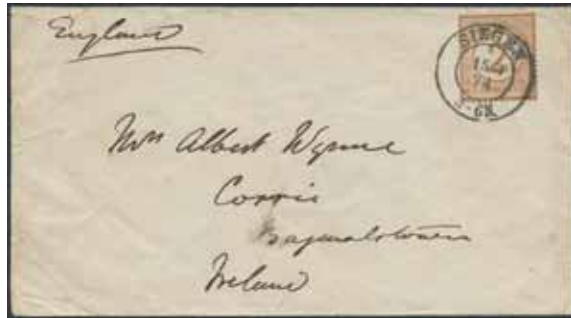 England
SIEGEN
Mrs Albert Wynne
Corrie
Bagnalstown
Ireland